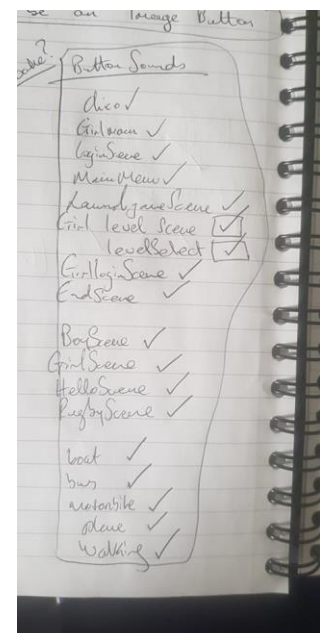 se an Image Button
Button Sounds
dico ✓
Girlmain ✓
loginScene ✓
MainMenu ✓
LaundrygameScene ✓
Girl level Scene ✓
levelSelect ✓
GirlloginScene ✓
EndScene ✓
BoyScene ✓
GirlScene ✓
HelloScene ✓
RugbyScene ✓
boat ✓
bus ✓
motorbike ✓
plane ✓
Walking ✓